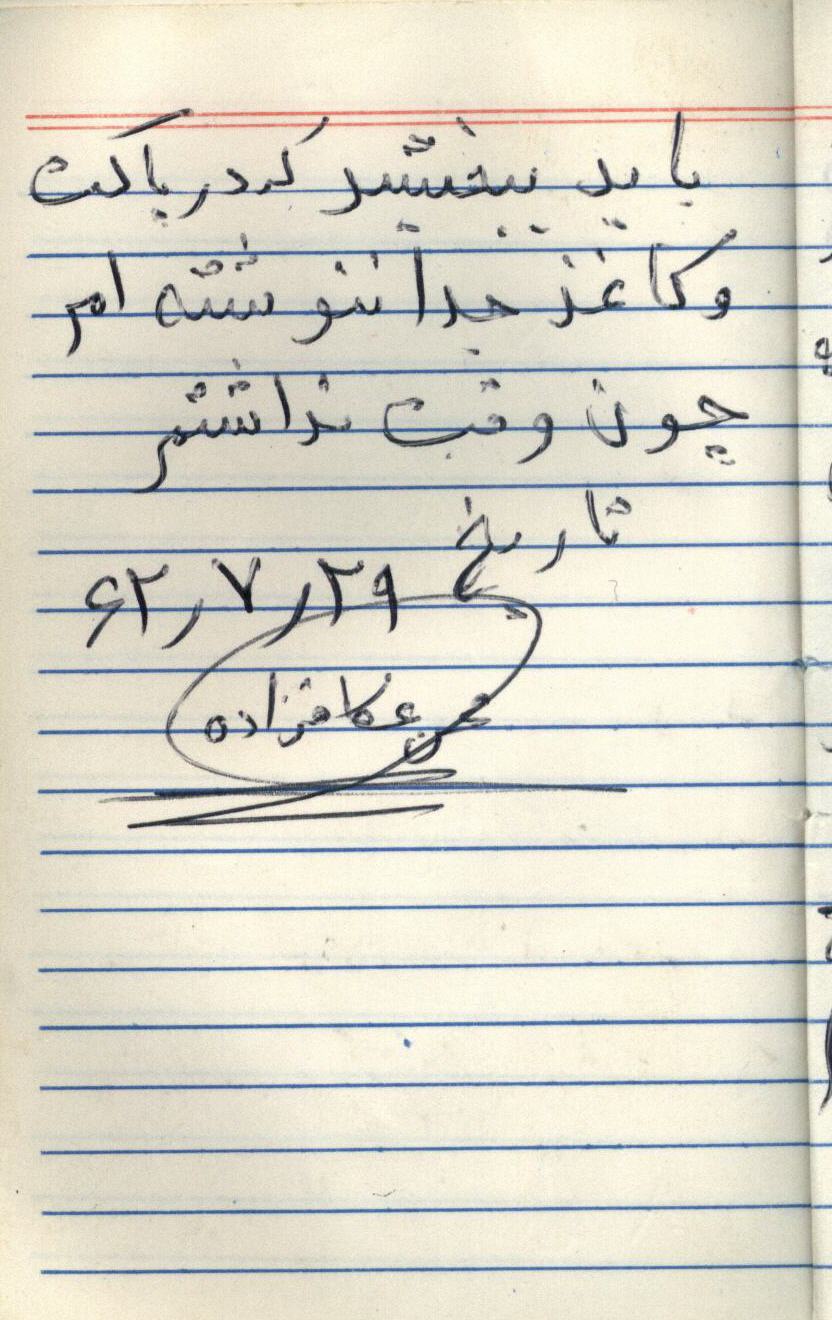 باید ببخشید که در پاکت
و کاغذ جدا ننوشته ام
چون وقت نداشتم
تاریخ
۶۲٫۷٫۲۹